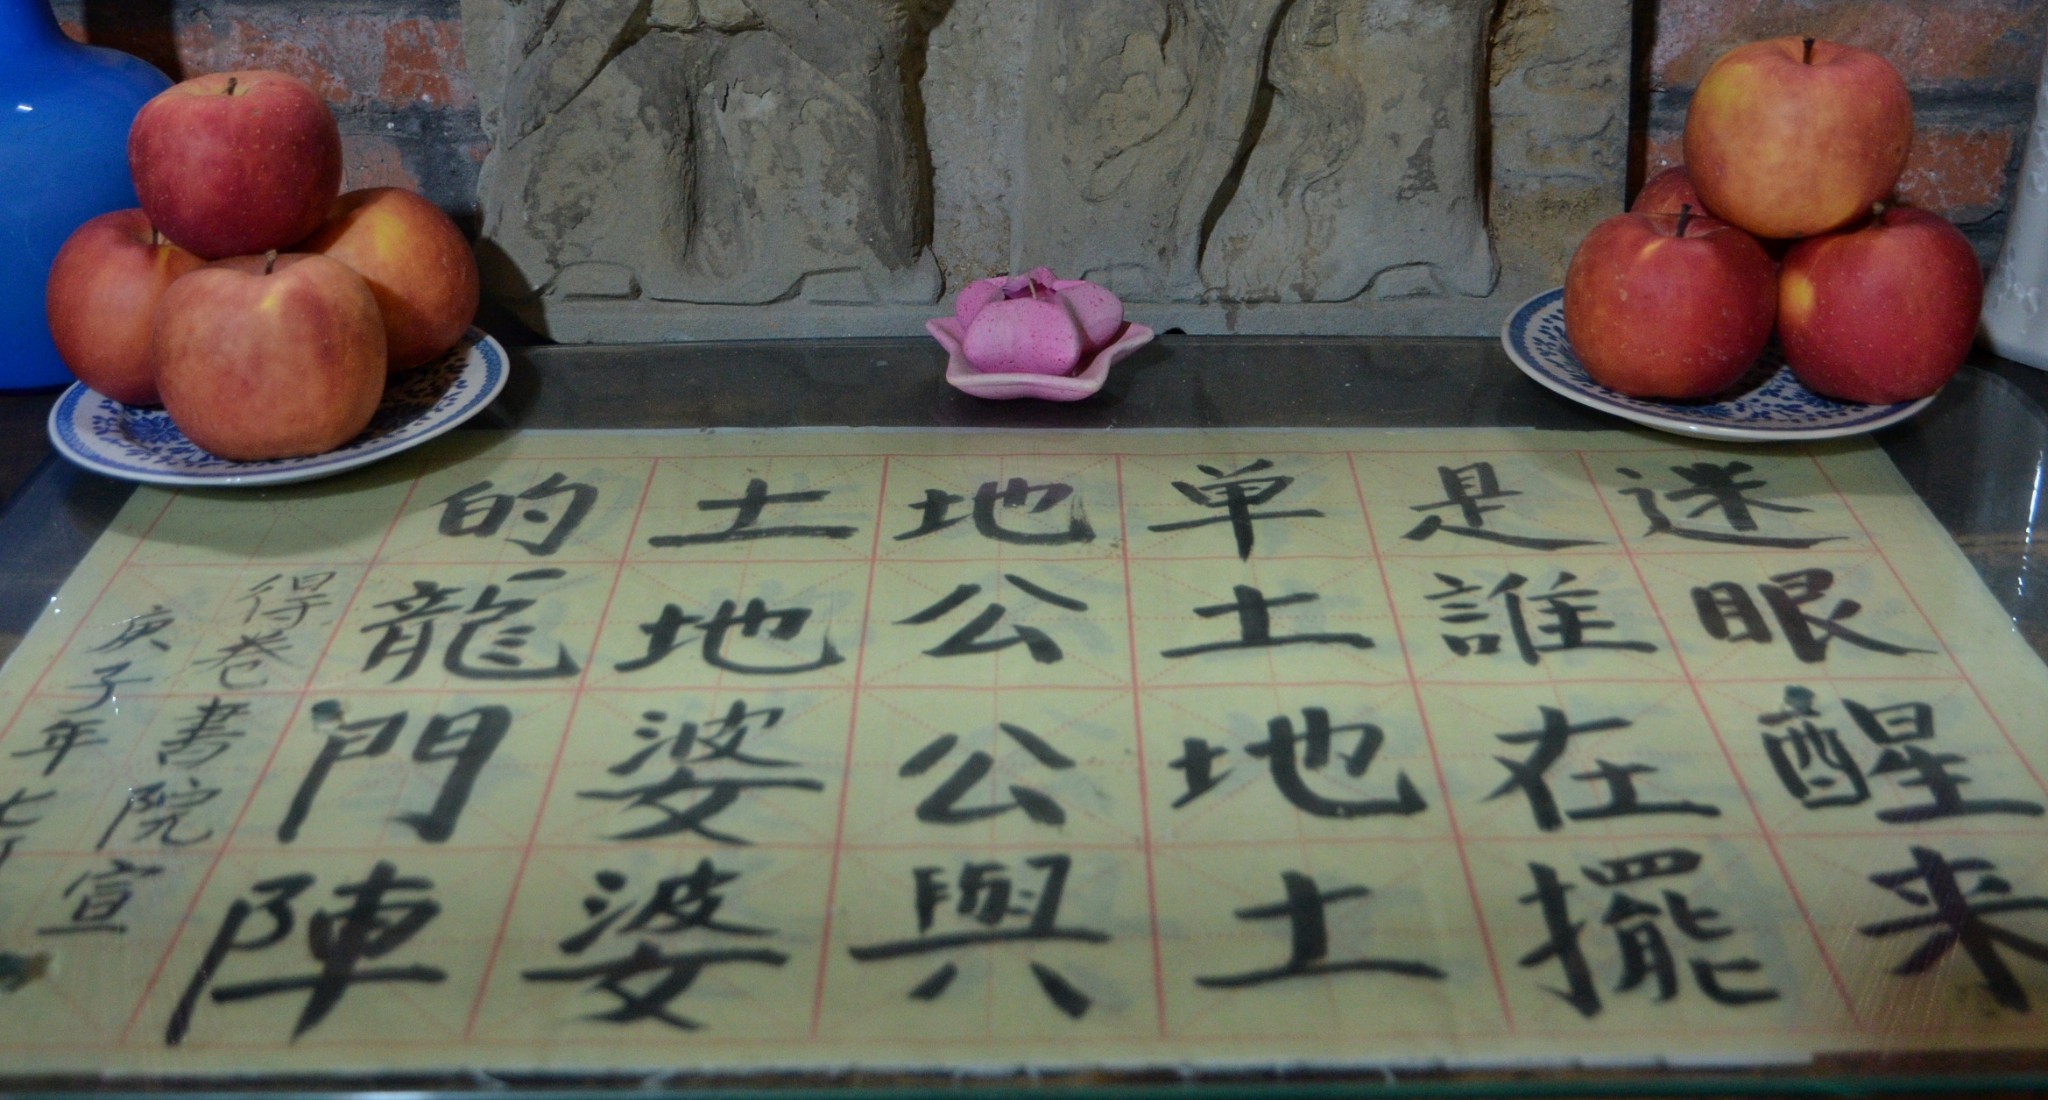 迷眼醒来
是誰在擺
单土地土
地公公與
土地婆婆
的龍門陣
得卷書院宣
庚子年七